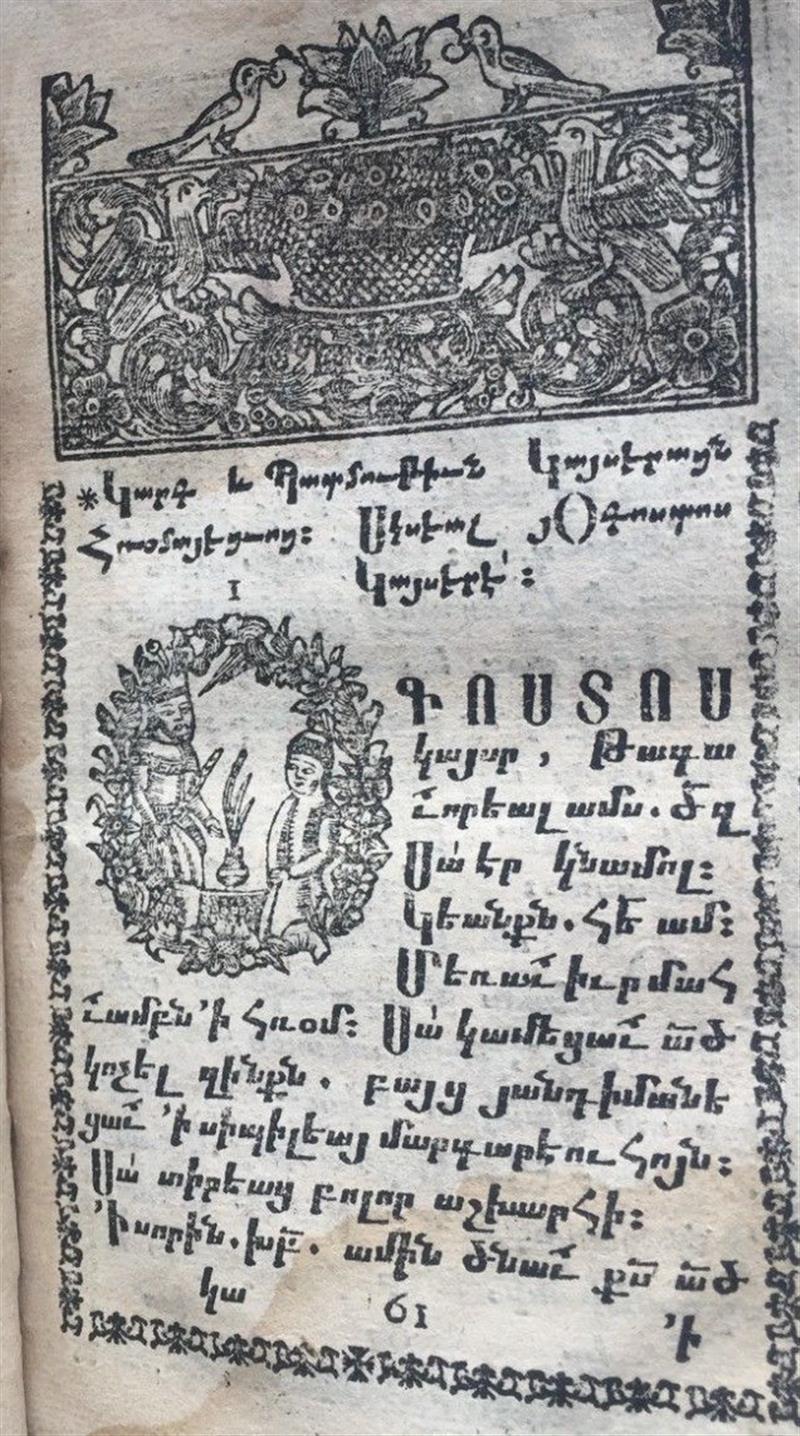 *Կարգ և Պատմութիւն Կայսերացն
Հռօմայեցւոց։ Սկսեալ յՕգոստոս
Կայսերէ՛։
1
ԳՈՍՏՈՍ
կայսր, Թագա
ւորեալ ամս. ծզ
Սա՛ էր կնամոլ։
Կեանքն. Հե ամ։
Մեռաւ իւր մահ
ւամբն ՚ի Հռօմ։ Սա՛ կամեցաւ ա՟ծ
կոչել զինքն. բայց յանդիմանե
ցաւ ՚ի սիպիլեայ մարգարէուհոյն։
Սա՛ տիրեաց բոլոր աշխարհի։
՚Ի սորին. խբ. ամին ծնաւ ք՟ս ա՟ծ
կա
61
՚ի